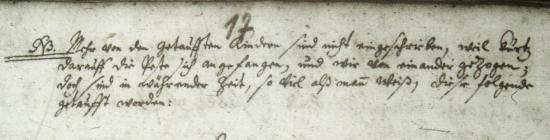 17
NB. Mehr von den Getaufften Kindern sind nicht eingeschrieben, weil kurtz
darauff die Peste sich angefangen, und wir von einander gezogen;
doch sind in währender Zeit, so viel alß mann weiß, diese folgende
getaufft worden: